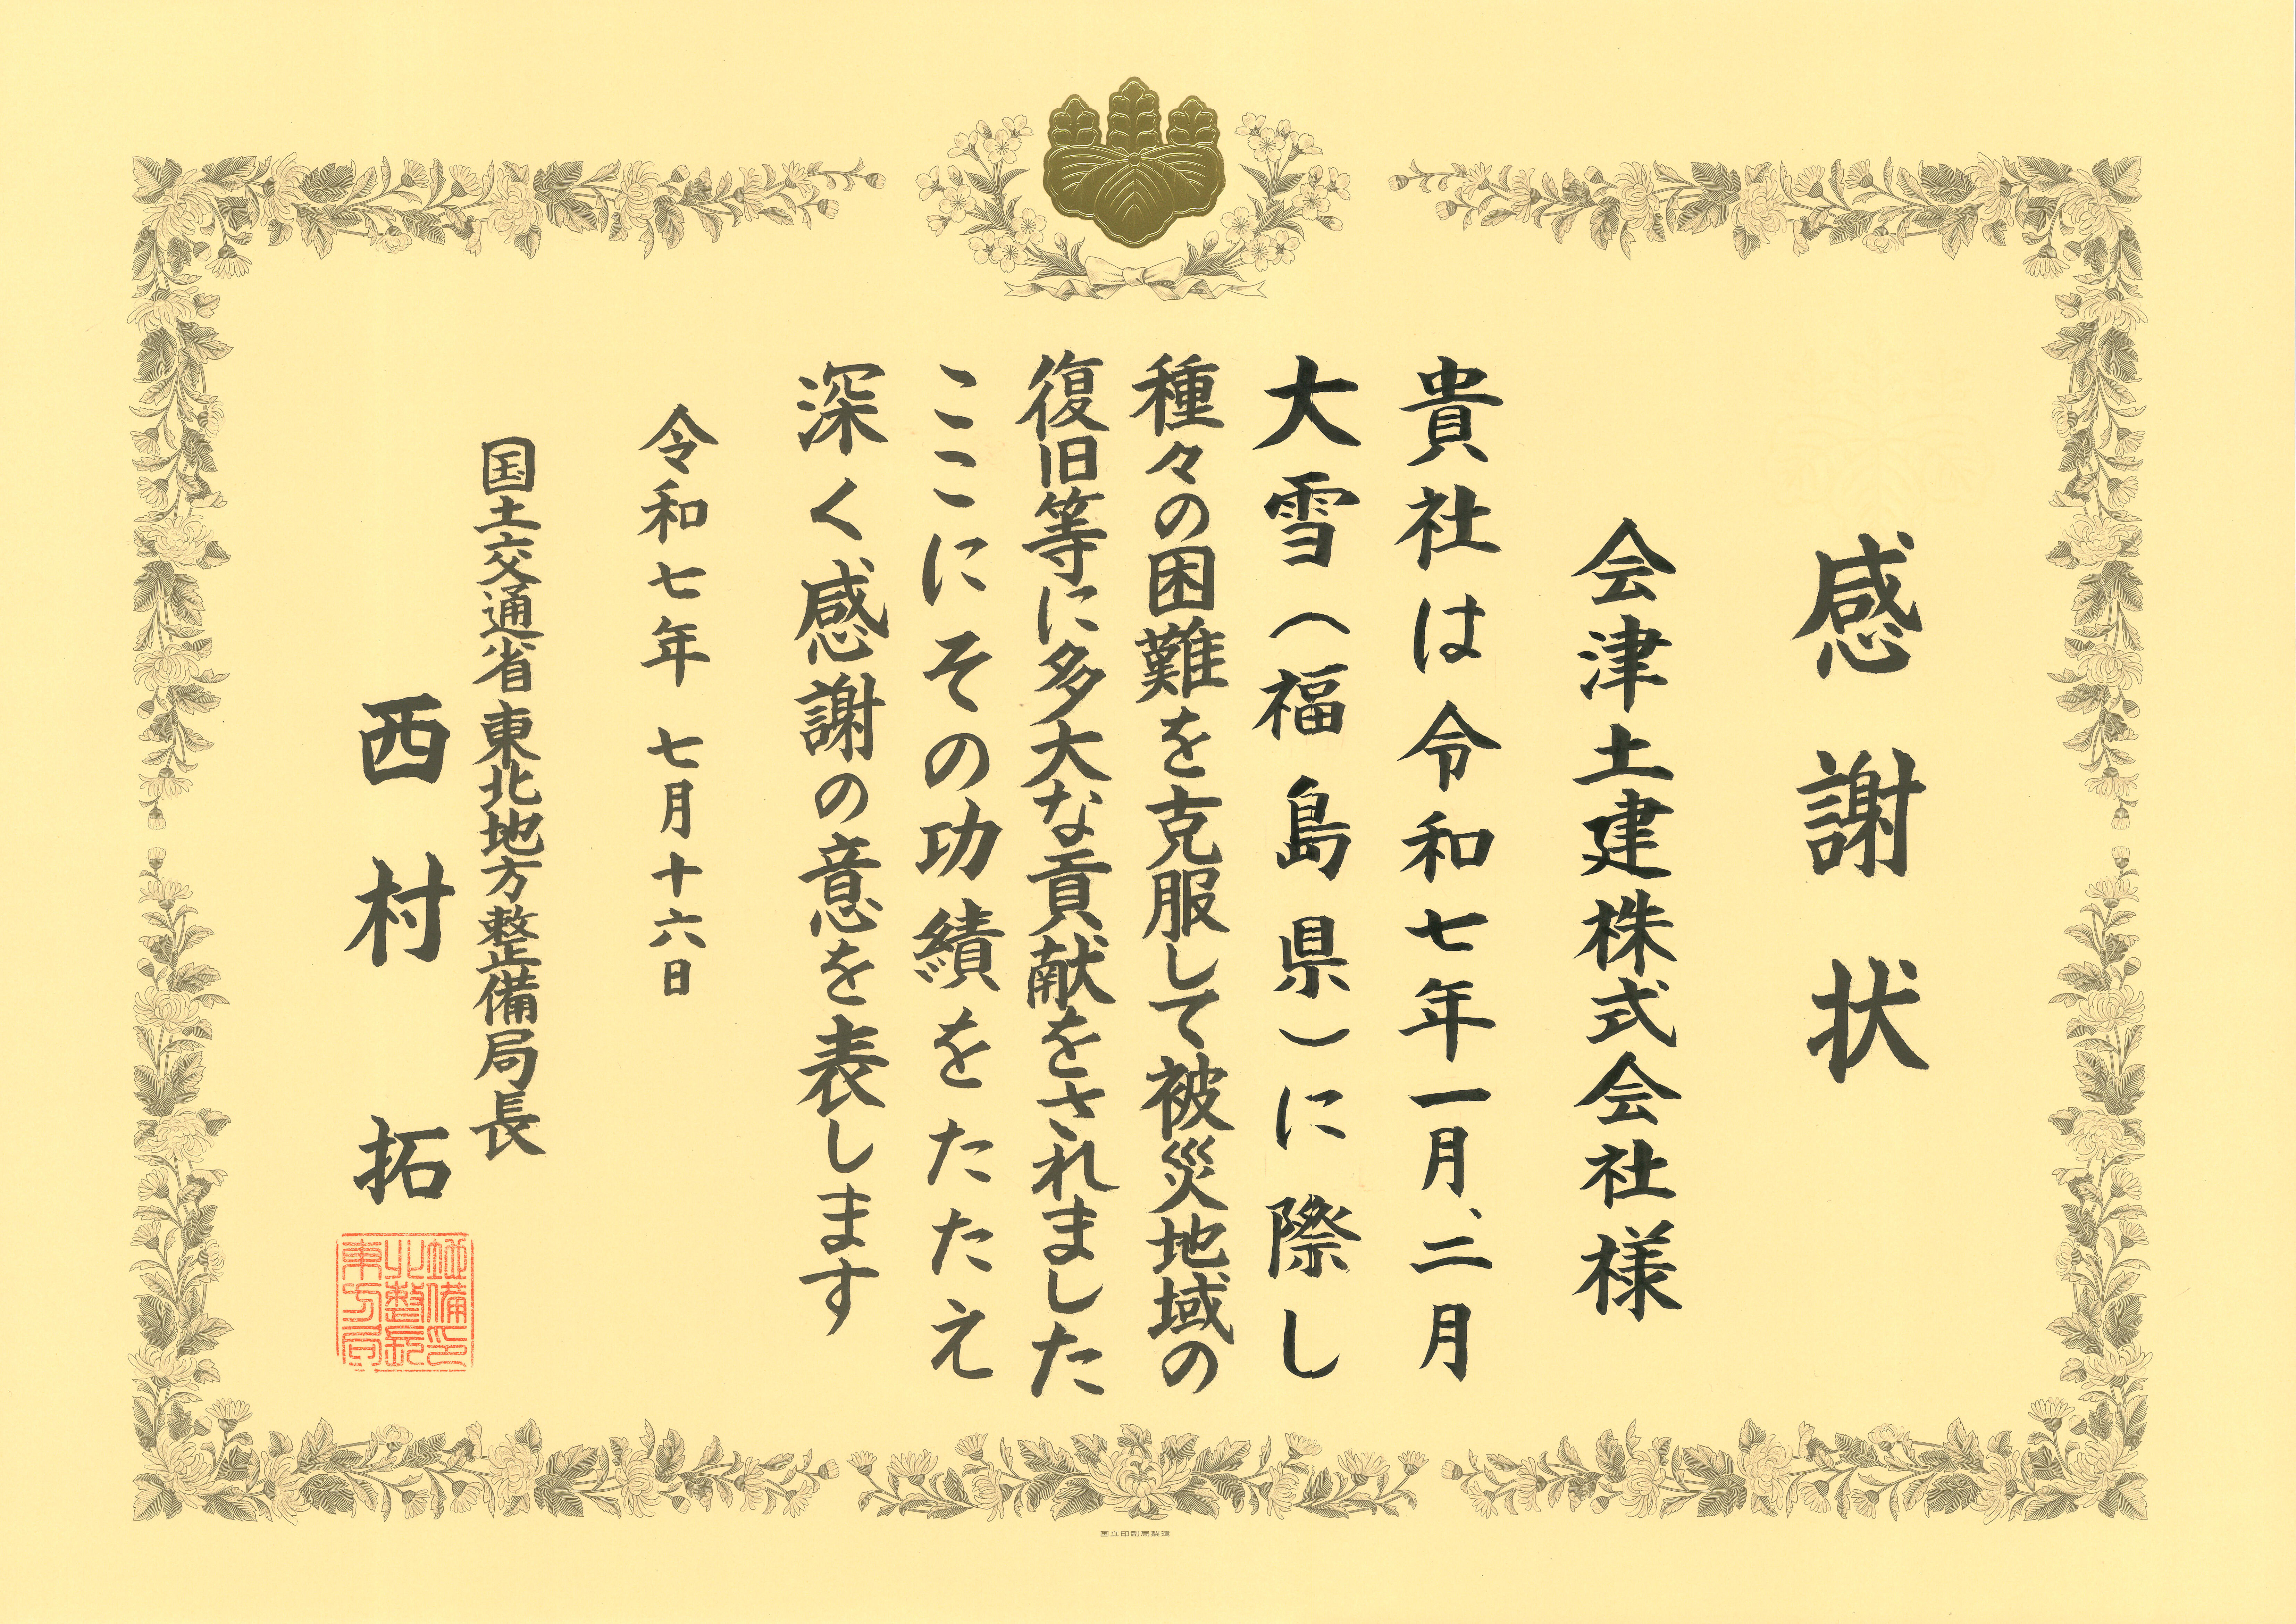 感謝状
会津土建株式会社様
貴社は令和七年一月、二月
大雪(福島県)に際し
種々の困難を克服して被災地域の
復旧等に多大な貢献をされました
ここにその功績をたたえ
深く感謝の意を表します
令和七年七月十六日
国土交通省東北地方整備局長
西村 拓
東北地方整備局長印
国立印刷局製造